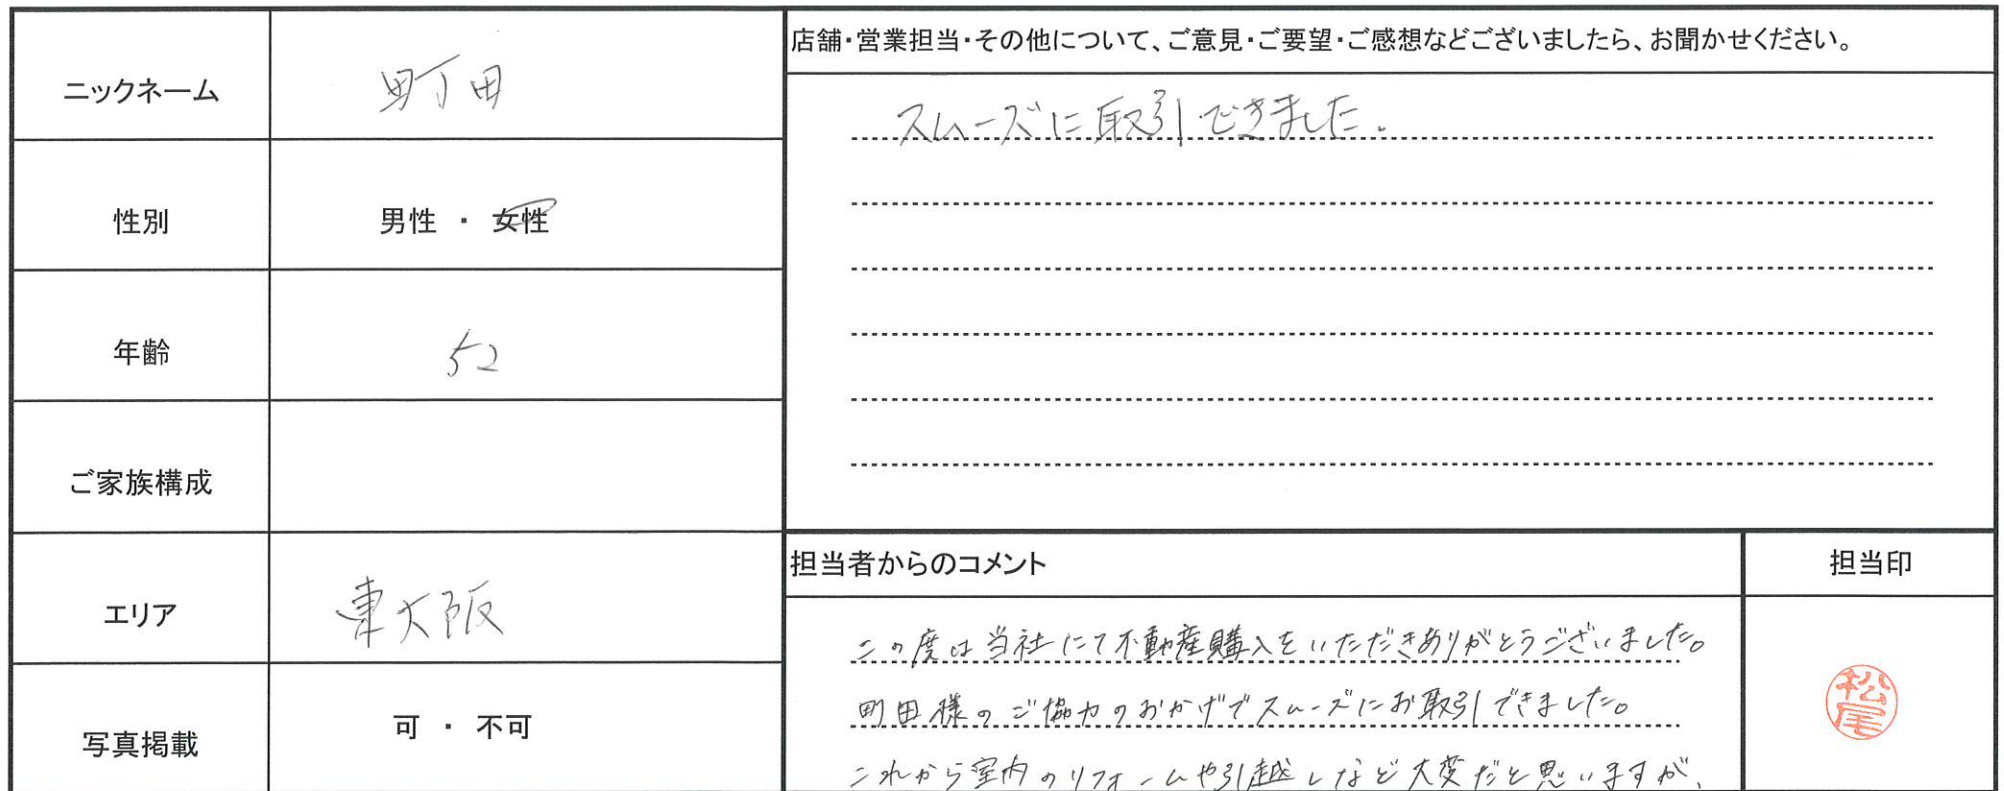 ニックネーム 町田
性別 男性 ・ 女性
年齢 52
ご家族構成
エリア 東大阪
写真掲載 可 ・ 不可
店舗・営業担当・その他について、ご意見・ご要望・ご感想などございましたら、お聞かせください。
スムーズに取引できました.
担当者からのコメント
この度は当社にて不動産購入をいただきありがとうございました。
町田様のご協力のおかげでスムーズにお取引できました。
これから室内のリフォームや引越しなど大変だと思いますが、
担当印
松尾